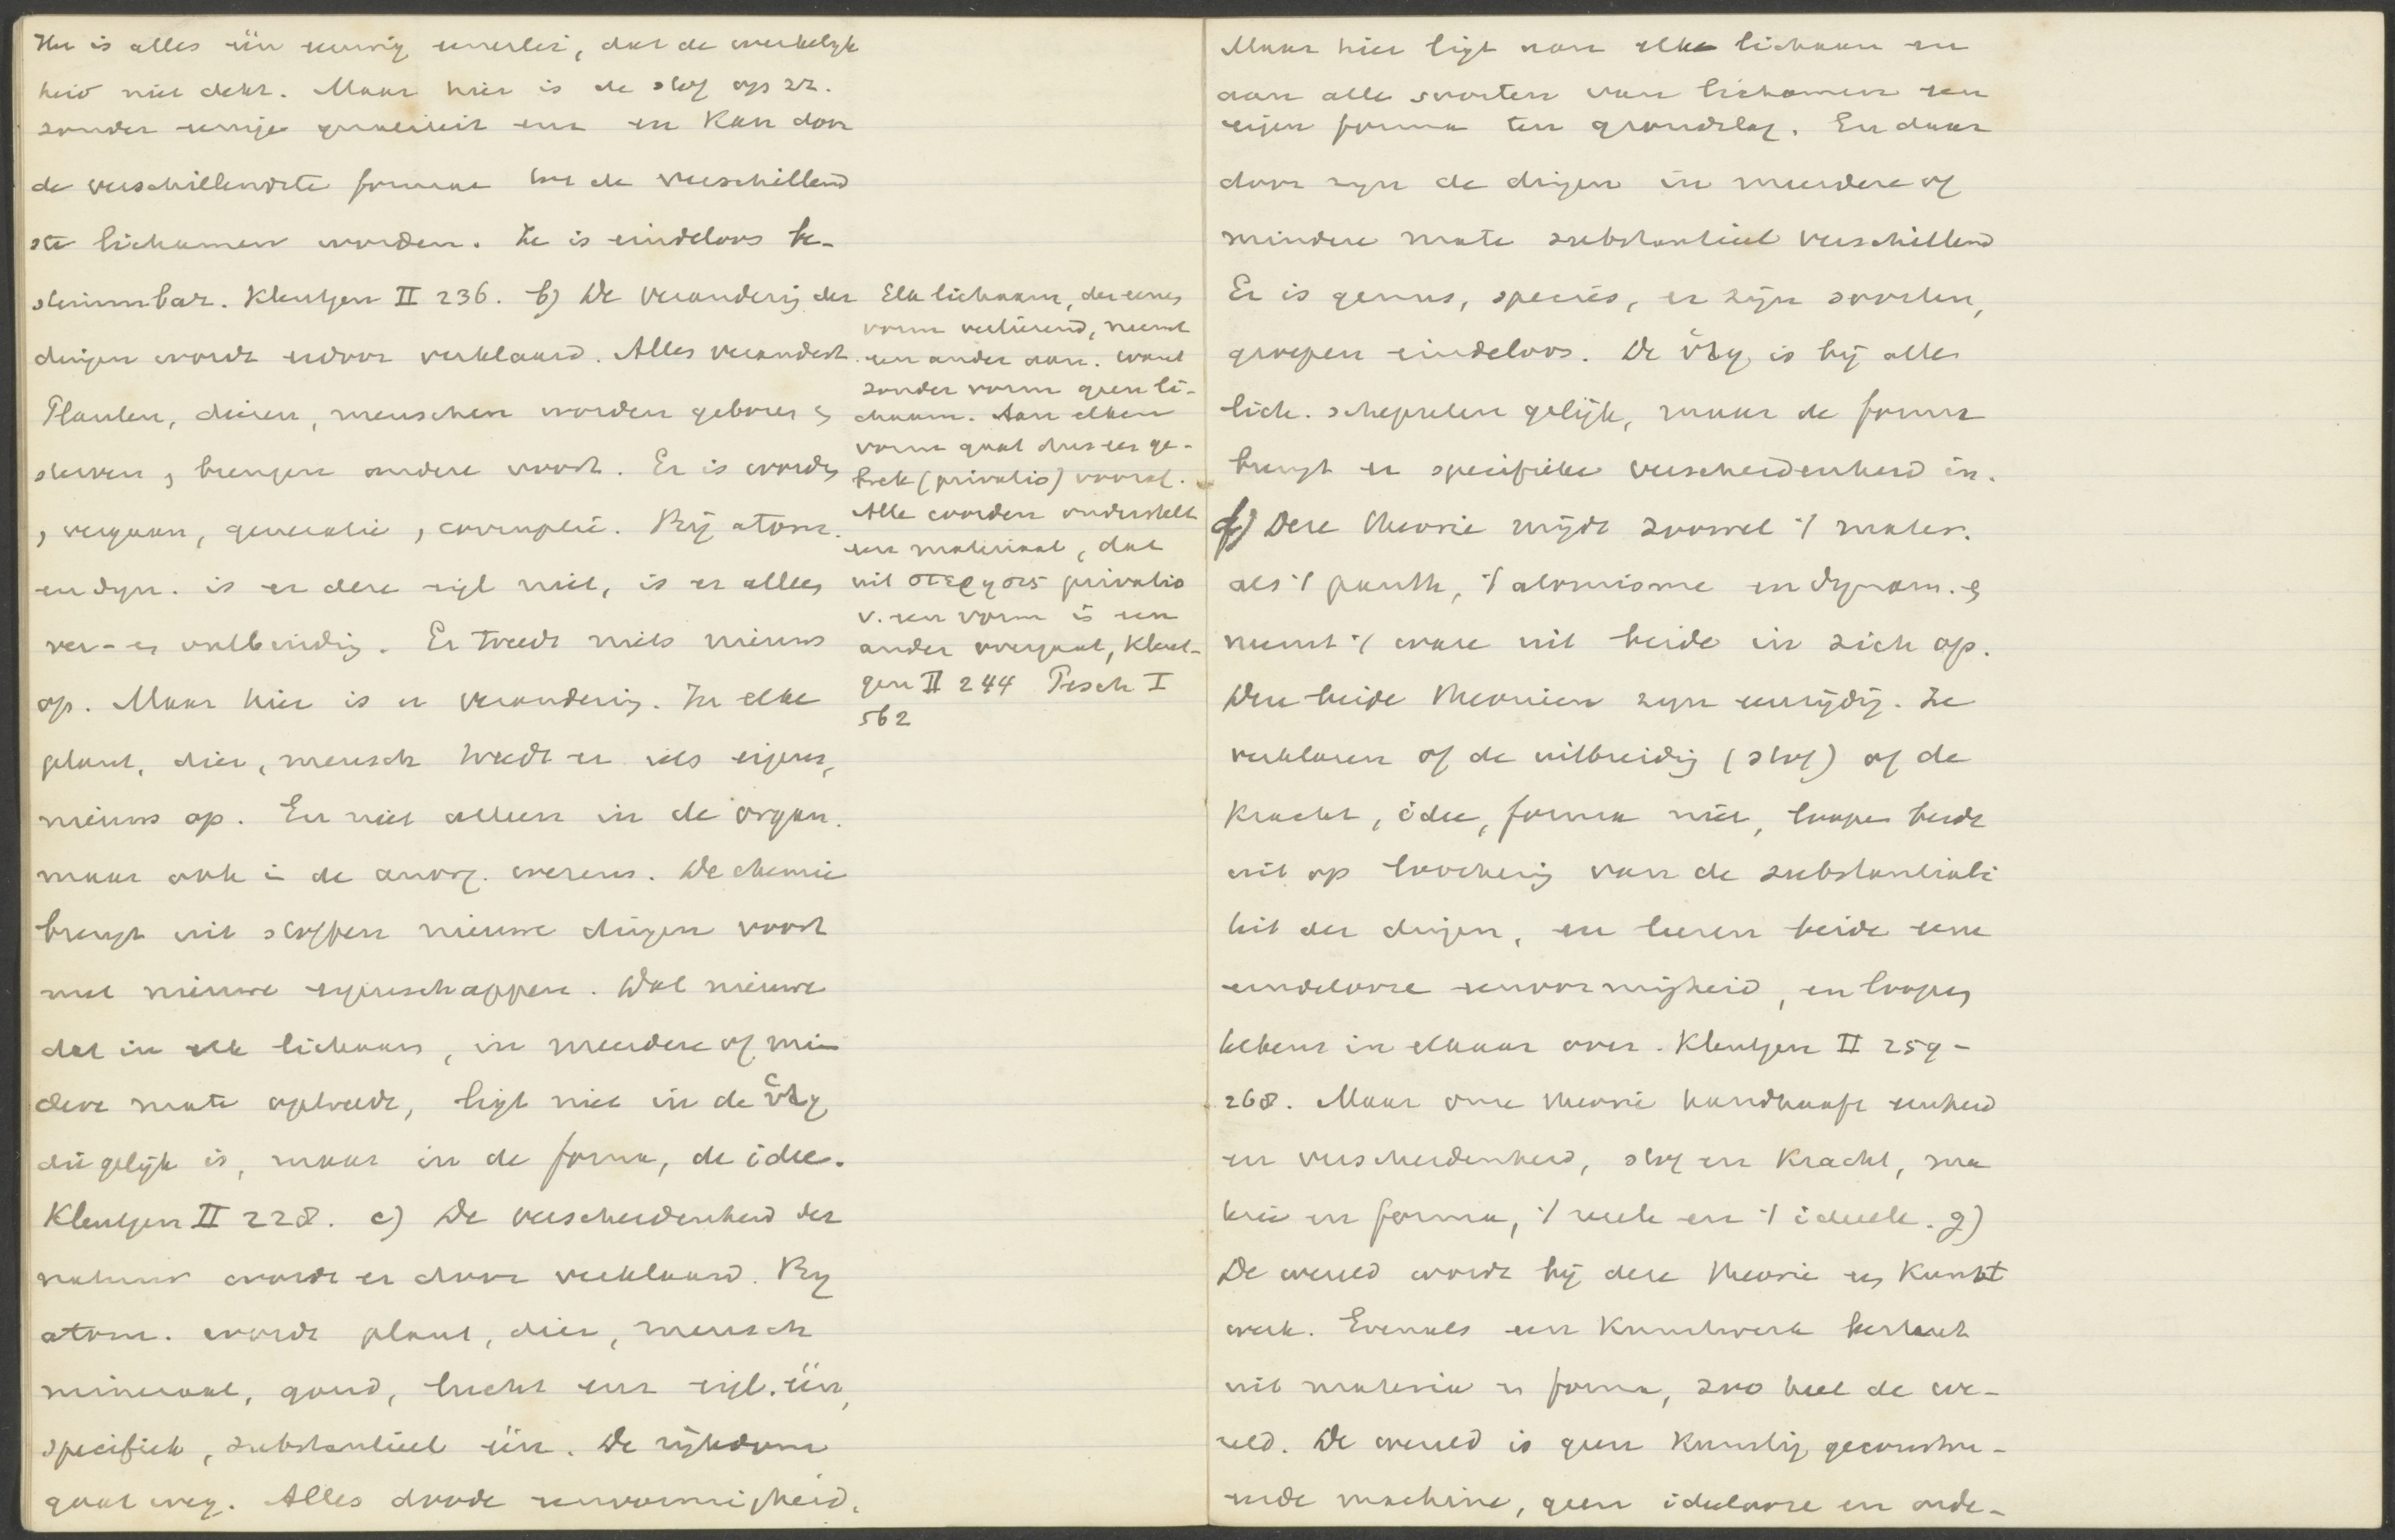 Hier is alles één eeuwig eenerlei, dat de werkelijk
heid niet dekt. Maar hier is de stof op zz.
zonder eenige qualiteit enz en kan door
de verschillendste formae tot de verschillend
ste lichamen worden. Ze is eindeloos be-
stemmbar. Kleutgen II 236. b) De verandering der
dingen wordt erdoor verklaard. Alles verandert.
Planten, dieren, menschen worden geboren &
sterven, brengen andere voort. Er is worden
, vergaan, generatie, corruptie. Bij atom.
en dyn. is er deze eigl niet, is er alleen
ver- en ontbinding. Er treedt niets nieuws
op. Maar hier is er verandering. In elke
plant, dier, mensch treedt er iets eigens,
nieuws op. En niet alleen in de organ.
maar ook in de anorg. wezens. De chemie
brengt uit stoffen nieuwe dingen voort
met nieuwe eigenschappen. Dat nieuwe
dat in elk lichaam, in meerdere of min
dere mate optreedt, ligt niet in de ὕλη
die gelijk is, maar in de forma, de idee.
Kleutgen II 228. c) De verscheidenheid der
natuur wordt er door verklaard. By
atom. wordt plant, dier, mensch
mineraal, goud, lucht enz eigl. één,
specifiek, substantieel één. De rijkdom
gaat weg. Alles doode eenvormigheid.
Elk lichaam, der eenen
vorm verliezend, neemt
een ander aan. want
zonder vorm geen li-
chaam. Aan elken
vorm gaat dus een ge-
brek (privatio) vooraf.
Alle worden onderstelt
een materiaal, dat
uit στερησις privatio
v. een vorm in een
ander overgaat, Kleut-
gen II 244 Pesch I
562
Maar hier ligt aan elk lichaam en
aan alle soorten van lichamen een
eigen forma ten grondslag. En daar
door zijn de dingen in meerdere of
mindere mate substantieel verschillend
Er is genus, species, er zijn soorten,
groepen eindeloos. De ὕλη is bij alle
lich. schepselen gelijk, maar de forma
brengt er specifieke verscheidenheid in.
f) Deze theorie mijdt zoowel 't mater.
als 't panth, 't atomisme en dynam. &
neemt 't ware uit beide in zich op.
Deze beide theorieen zijn eenzijdig. Ze
verklaren of de uitbreiding (stof) of de
kracht, idee, forma niet, loopen beide
uit op loochening van de substantiali
teit der dingen, en leeren beide eene
eindelooze eenvormigheid, en loopen
telkens in elkaar over. Kleutgen II 259-
268. Maar onze theorie handhaaft eenheid
en verscheidenheid, stof en kracht, ma
terie en forma, 't reeele en 't ideeele. g)
De wereld wordt bij deze theorie een kunst
werk. Evenals een kunstwerk bestaat
uit materia en forma, zoo heel de we-
reld. De wereld is geen kunstig geconstru-
eerde machine, geen ideelooze en orde-